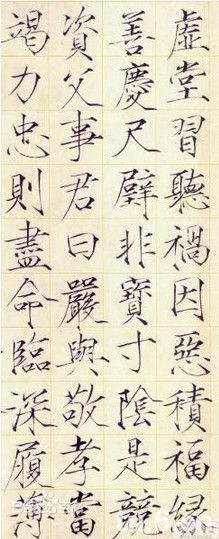 虛堂習聽禍因惡積福緣
善慶尺璧非寶寸陰是競
資父事君曰嚴與敬孝當
竭力忠則盡命臨深履薄